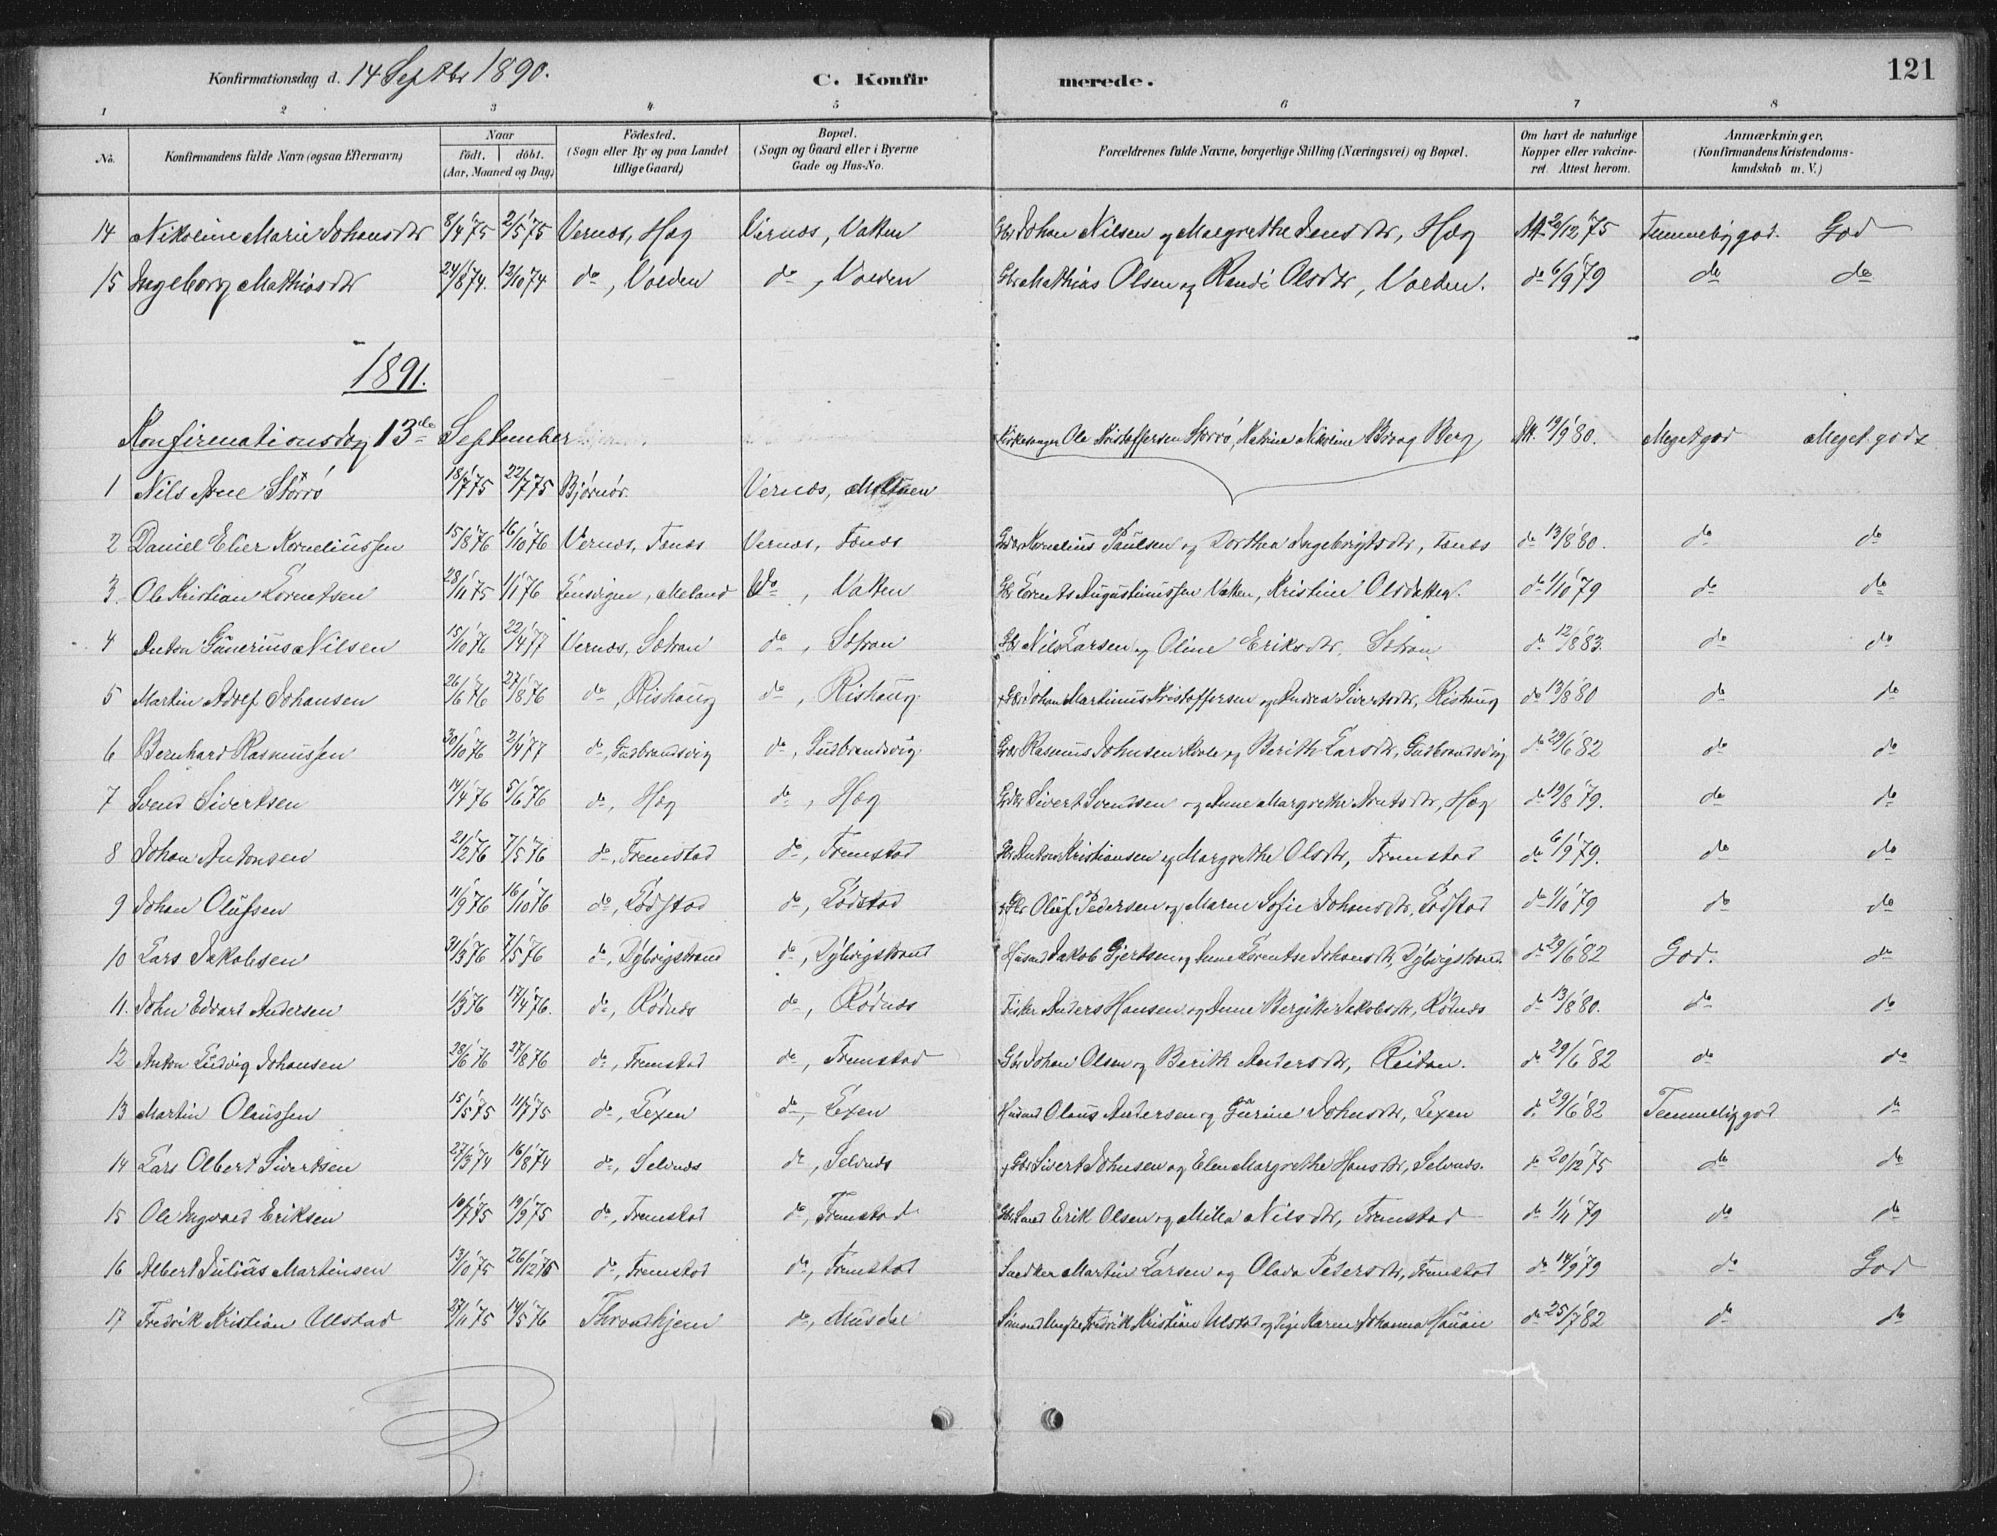 Konfirmationsdag d. 14 Septbr 1890. C. Konfirmerede. 121
1 2 3 4 5 6 7 8
No. Konfirmandens fulde Navn (ogsaa Efternavn) Naar födt. döbt. (Aar, Maaned og Dag) Födested. (Sogn eller By og paa Landet tillige Gaard) Bopæl. (Sogn og Gaard eller i Byerne Gade og Hus-No. Forældrenes fulde Navne, borgerlige Stilling (Næringsvei) og Bopæl. Om havt de naturlige Kopper eller vakcineret. Attest herom. Anmærkninger. (Konfirmandens Kristendomskundskab m. V.)
14 Nikoline Marie Johansdtr 8/4 75 2/5 75 Vernæs, Hæg Vernæs, Vatten Gbr Johan Nilsen og Margrethe Jensdtr, Hæg Att. 20/12 75 Temmelig god. God
15 Ingeborg Mathiasdtr 24/8 74. 12/10 74 do, Volden do, Volden Gbr Mathias Olsen og Randi Olsdtr, Volden. do 6/9 79 do do
1891.
Konfirmationsdag 13de September Kirkesanger Ole Kristoffersen Störrö, Katrine Nikoline Berg Att. 19/9 80. Meget god Meget god
1 Nils Arne Störrö 18/7 75 22/7 75 Bjørnør. Vernæs,
2 Daniel Elier Korneliussen 15/8 76 16/10 76 Vernæs, Tænes Vernæs, Tænes Gbr Kornelius Paulsen og Dorthea Ingebrigtsdtr, Tænes do 13/8 80. do do
3. Ole Kristian Lorentsen 28/11 75 1/1 76 Lensvigen, Meland do, Vatten Gbr Lorents Augustinussen Vatten, Kristine Olsdatter. do 1/10 79 do do
4 Anton Gunerius Nilsen 15/10 76 22/4 77 Vernæs, Sætran do, Sætran Gbr Nils Larsen og Oline Eriksdtr, Sætran do 12/8 83. do do
5 Martin Adolf Johansen 26/6 76 27/8 76 do, Rishaug do, Rishaug Gbr Johan Martinus Kristoffersen og Andrea Sivertsdtr, Rishaug do 13/8 80 do do
6 Bernhard Rasmussen 30/10 76 2/4 77 do, Gudbrandsvig do, Gudbrandsvig Gbr Rasmus Johnsen og Berith Larsdtr, Gudbrandsvig do 29/6 82 do do
7 Svend Sivertsen 14/4 76 5/6 76 do, Hæg do, Hæg Gbr Sivert Svendsen og Anne Margrethe Arntsdtr, Hæg do 19/8 79. do do
8 Johan Antonsen 21/2 76 7/5 76 do, Fremstad do, Fremstad Gbr Anton Kristiansen og Margrethe Olsdtr, Fremstad do 6/9 79. do do
9 Johan Olufsen 11/9 76 16/10 76 do, Lodstad do, Lodstad Gbr Oluf Pedersen og Maren Sofie Johansdtr, Lodstad do 1/10 79 do do
10 Lars Jakobsen 31/3 76 7/5 76 do, Dybvigstrand do, Dybvigstrand Husmd Jakob Gjertsen og Anne Lorentse Johansdtr, Dybvigstrand. do 29/6 82 God. do
11. John Edvard Andersen 1/3 76 17/4 76. do, Rødnæs do, Rødnæs Fisker Anders Hansen og Anne Bergitte Jakobsdtr, Rødnæs do 13/8 80. do do
12 Anton Ludvig Johansen 28/6 76 27/8 76 do, Fremstad do, Fremstad Gbr Johan Olsen og Berith Andersdtr, Reitan. do 29/6 82 do do
13 Martin Olaussen 15/5 75 11/7 75 do, Lexen do, Lexen Husmd Olaus Andersen og Gurine Johnsdtr, Lexen do 29/6 82 Temmelig god do
14 Lars Olbert Sivertsen 27/3 74 16/8 74 do, Selvnæs do, Selvnæs Gbr Sivert Johnsen og Elen Margrethe Hansdtr, Selvnæs. do 20/12 75 do do
15 Ole Ingvald Eriksen 10/7 75 19/9 75 do, Fremstad do, Fremstad Erik Olsen og Milla Nilsdtr, Fremstad do 1/11 79 do do
16 Albert Julius Martinsen 13/10 75 26/12 75 do, Fremstad do, Fremstad Snedker Martin Larsen og Olava Pedersdtr, Fremstad do 14/9 79 do God
17 Fredrik Kristian Ulstad 27/11 75 14/5 76 Throndhjem do, Musdal Fredrik Kristian Ulstad og Pige Karen Johanna Hauan do 25/7 82 do do